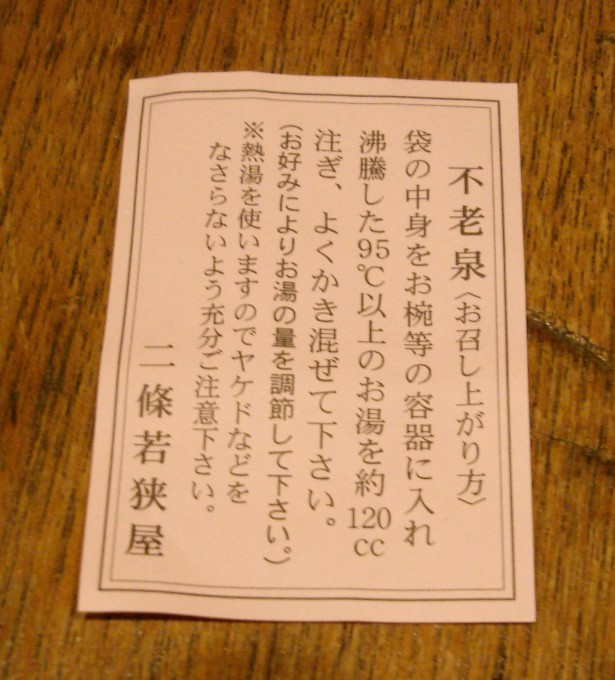 不老泉〈お召し上がり方〉
袋の中身をお椀等の容器に入れ
沸騰した95℃以上のお湯を約120cc
注ぎ、よくかき混ぜて下さい。
(お好みによりお湯の量を調節して下さい。)
※熱湯を使いますのでヤケドなどを
なさらないよう充分ご注意下さい。
二條若狭屋